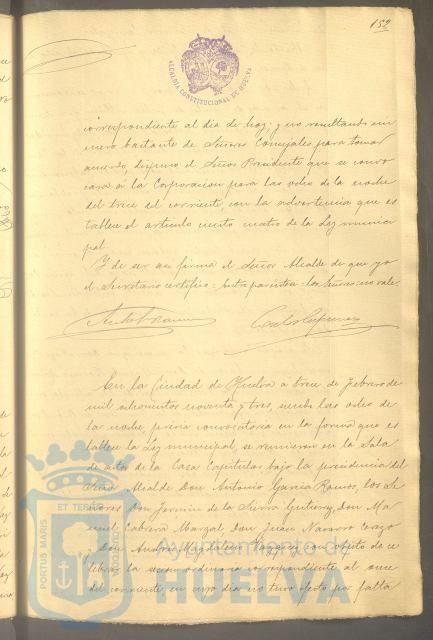 152
ALCALDIA CONSTITUCIONAL DE HUELVA
correspondiente al dia de hoy; y no resultando nu
mero bastante de Señores Concejales para tomar
acuerdo, dispuso el Señor Presidente que se convo
cara á la Corporacion para las ocho de la noche
del trece del corriente, con la advertencia que es
tablece el articulo ciento cuatro de la Ley munici
pal.
Y de ser asi firma el Señor Alcalde de que yo
el Secretario certifico = los Señores = no vale.
En la Ciudad de Huelva á trece de Febrero de
mil ochocientos noventa y tres, siendo las ocho de
la noche, prévia convocatoria en la forma que es
tablece la Ley municipal, se reunieron en la Sala
de actos de la Casa Capitular bajo la presidencia del
Señor Alcalde Don Antonio Garcia Ramos, los Se
ñores Don Fermin de la Sierra Gutierrez, Don Ma
nuel Cabrera Don Juan Navarro
y Don Andrés Vazquez, con objeto de ce
lebrar la sesion ordinaria correspondiente al once
del corriente en cuyo dia no tuvo efecto por falta
PORTUS MARIS ET TERRAE CUSTODIA
Ayuntamiento de
HUELVA